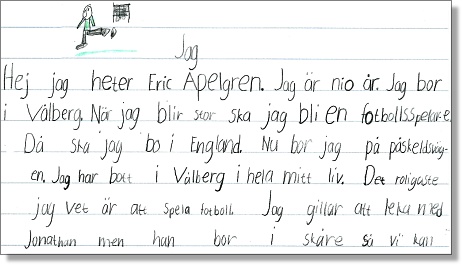 Jag
Hej jag heter Eric Apelgren. Jag är nio år. Jag bor
i Vålberg. När jag blir stor ska jag bli en fotbollsspelare.
Då ska jag bo i England. Nu bor jag på påskeldsväg-
en. Jag har bott i Vålberg i hela mitt liv. Det roligaste
jag vet är att spela fotboll. Jag gillar att leka med
Jonathan men han bor i skåre så vi kan